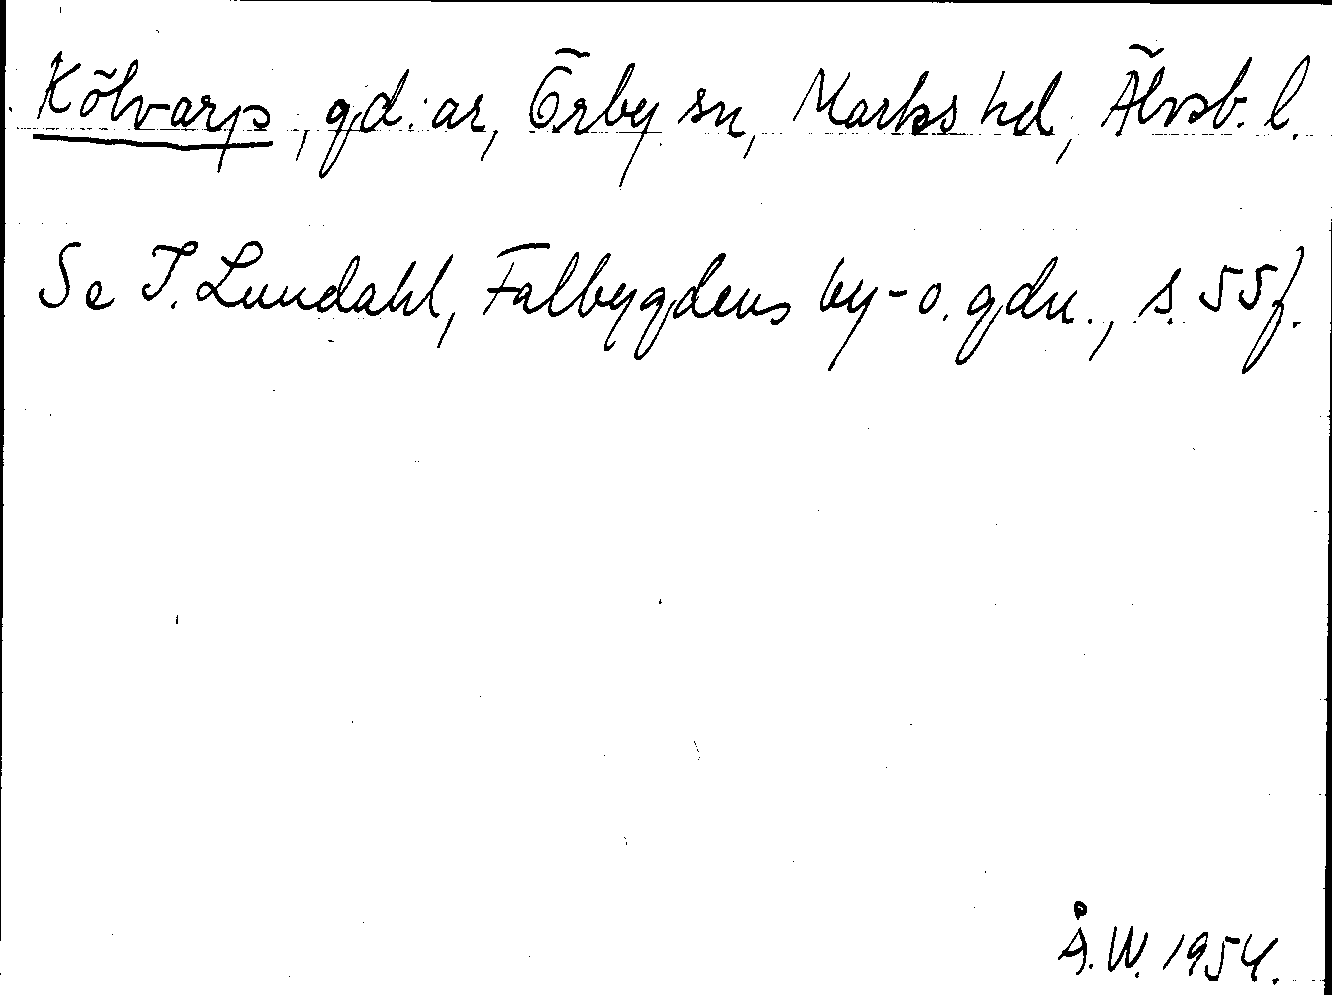 Kölvarp, gd:ar, Örby sn, Marks hd, Älvsb. l.
Se I. Lundahl, Falbygdens by- o. gdn., s. 55 f.
Å.W. 1954.